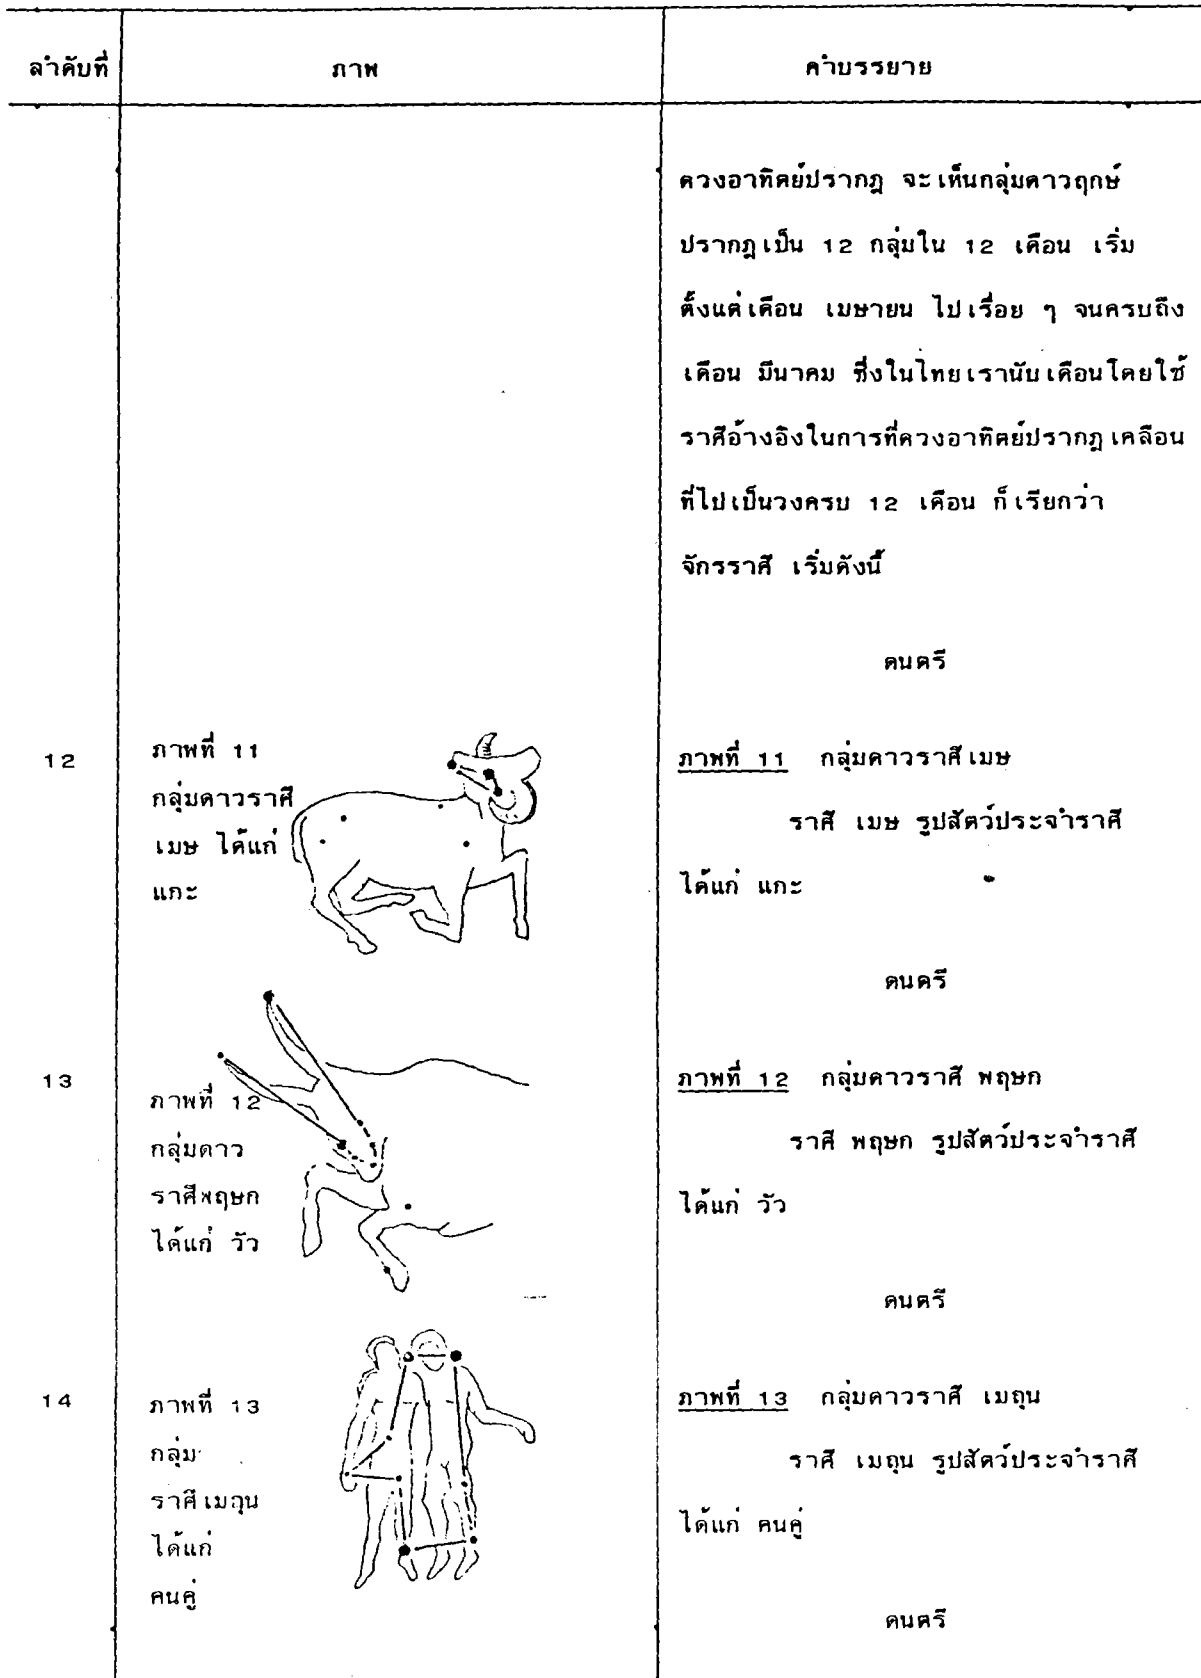 ลำดับที่ ภาพ คำบรรยาย
ดวงอาทิตย์ปรากฏ จะเห็นกลุ่มดาวฤกษ์
ปรากฏเป็น 12 กลุ่มใน 12 เดือน เริ่ม
ตั้งแต่เดือน เมษายน ไปเรื่อย ๆ จนครบถึง
เดือน มีนาคม ซึ่งในไทยเรานับเดือนโดยใช้
ราศีอ้างอิงในการที่ดวงอาทิตย์ปรากฏเคลื่อน
ที่ไปเป็นวงครบ 12 เดือน ก็เรียกว่า
จักรราศี เริ่มดังนี้
ดนตรี
12
ภาพที่ 11
กลุ่มดาวราศี
เมษ ได้แก่
แกะ
ภาพที่ 11 กลุ่มดาวราศีเมษ
ราศี เมษ รูปสัตว์ประจำราศี
ได้แก่ แกะ
ดนตรี
13
ภาพที่ 12
กลุ่มดาว
ราศีพฤษก
ได้แก่ วัว
ภาพที่ 12 กลุ่มดาวราศี พฤษก
ราศี พฤษก รูปสัตว์ประจำราศี
ได้แก่ วัว
ดนตรี
14
ภาพที่ 13
กลุ่ม
ราศีเมถุน
ได้แก่
คนคู่
ภาพที่ 13 กลุ่มดาวราศี เมถุน
ราศี เมถุน รูปสัตว์ประจำราศี
ได้แก่ คนคู่
ดนตรี